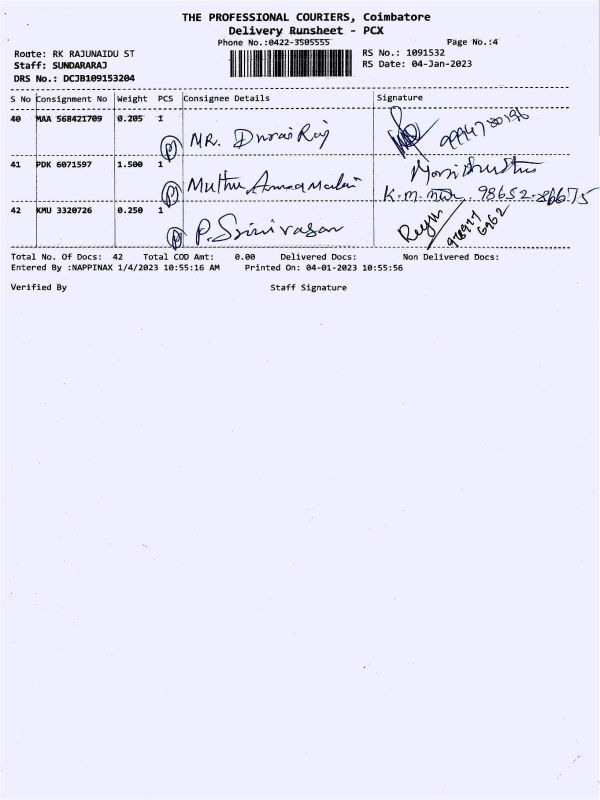 THE PROFESSIONAL COURIERS, Coimbatore
Delivery Runsheet - PCX
Phone No.:0422-3505555 Page No.:4
Route: RK RAJUNAIDU ST RS No.: 1091532
Staff: SUNDARARAJ RS Date: 04-Jan-2023
DRS No.: DCJB109153204
S No Consignment No Weight PCS Consignee Details Signature
40 MAA 568421709 0.205 1
(P) MR. Durai Raj 9994780196
41 PDK 6071597 1.500 1
(P) Muthu Annamalai
K.m. 98652-86675
42 KMU 3320726 0.250 1
(P) P. Srinivasan
Total No. Of Docs: 42 Total COD Amt: 0.00 Delivered Docs: Non Delivered Docs:
Entered By :NAPPINAX 1/4/2023 10:55:16 AM Printed On: 04-01-2023 10:55:56
Verified By Staff Signature